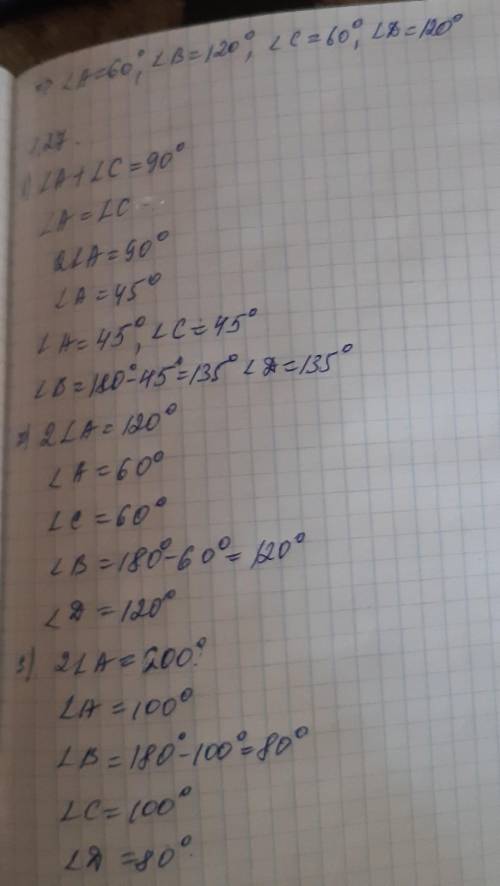 ∠A=60°, ∠B=120°, ∠C=60°, ∠D=120°
27.
1) ∠A+∠C=90°
∠A=∠C
2∠A=90°
∠A=45°
∠A=45°, ∠C=45°
∠B=180°-45°=135° ∠D=135°
2) 2∠A=120°
∠A=60°
∠C=60°
∠B=180°-60°=120°
∠D=120°
3) 2∠A=200°
∠A=100°
∠B=180°-100°=80°
∠C=100°
∠D=80°